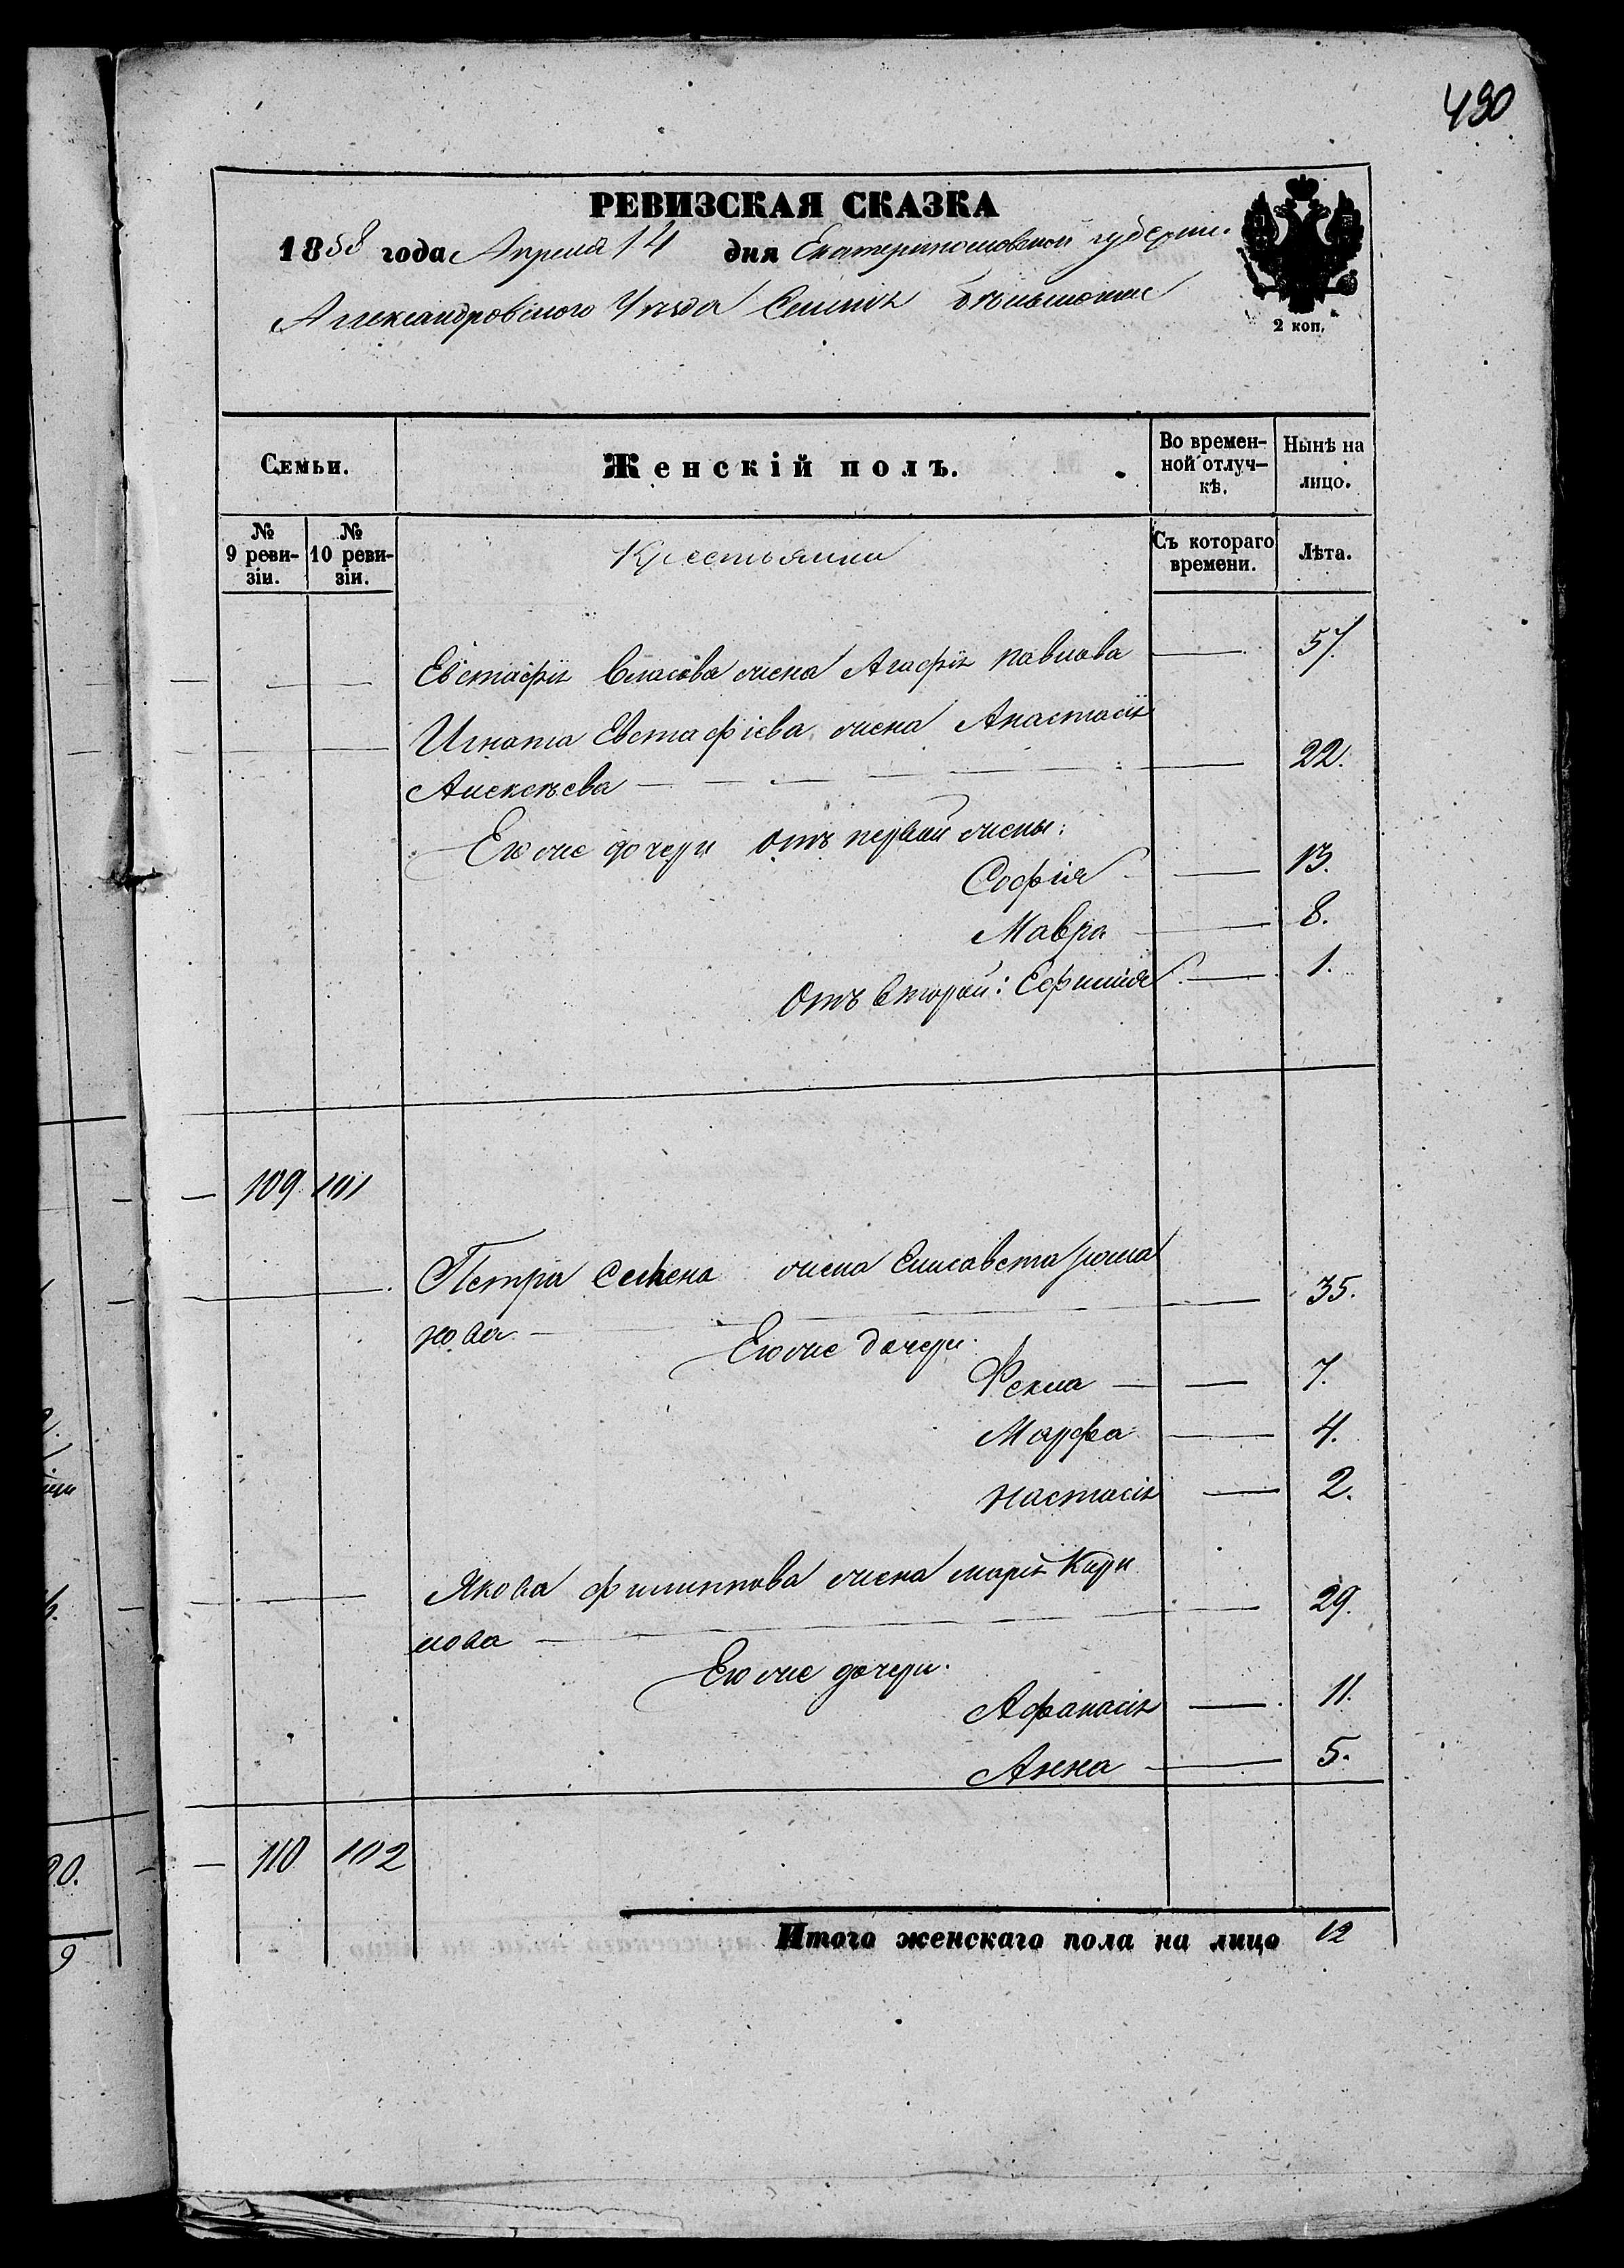 490
РЕВИЗСКАЯ СКАЗКА
1858 года Апреля 14 дня Екатеринославской губернии.
Александровского Уезда Селенія
2 коп.
Семьи.
Женскій полъ.
Во времен-
ной отлуч-
кѣ.
Нынѣ на
лицо.
№
9 реви-
зіи.
№
10 реви-
зіи.
Крестьянки
Съ котораго
времени.
Лѣта.
Евстафія Власова жена Агафія Павлова — 57.
Игната Евстафіева жена Анастасія
Алексѣева — 22.
Его же дочери отъ первой жены:
Софія — 13.
Мавра — 8.
отъ второй: Ефимія — 1.
109 101
Петра Семена жена Елисавета рома
нова — 35.
Его же дочери
Фекла — 7.
Марфа — 4.
Настасія — 2.
Якова филиппова жена марія Кири
лова — 29.
Его же дочери.
Афанасія — 11.
Анна — 5.
110 102
Итого женскаго пола на лицо 12